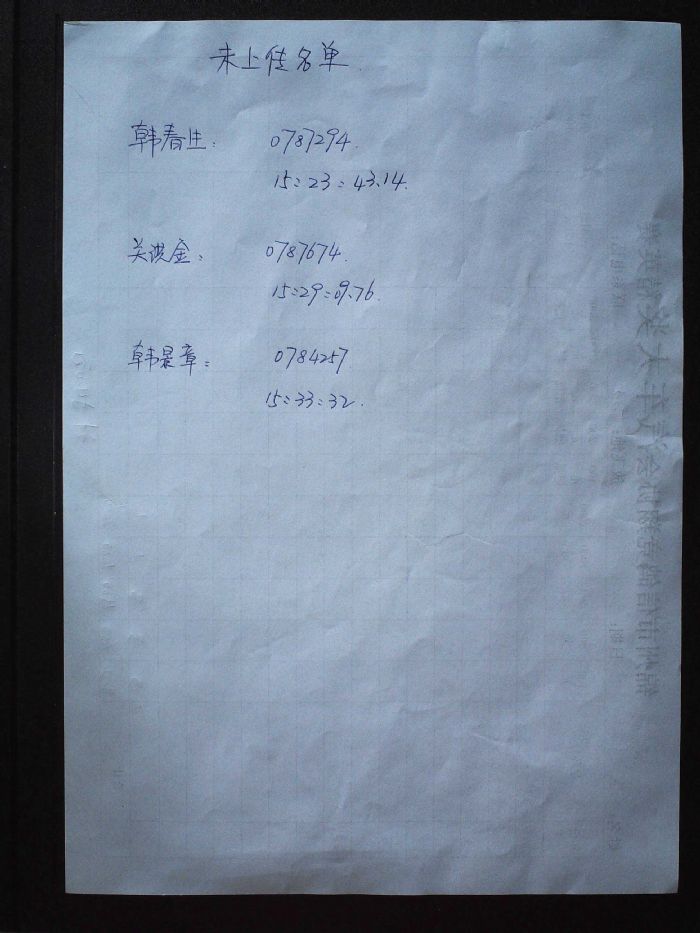 未上传名单.
韩春生: 0787294.
15:23:43.14.
关洪金: 0787674.
15:29:09.76.
韩景章: 0784257
15:33:32.